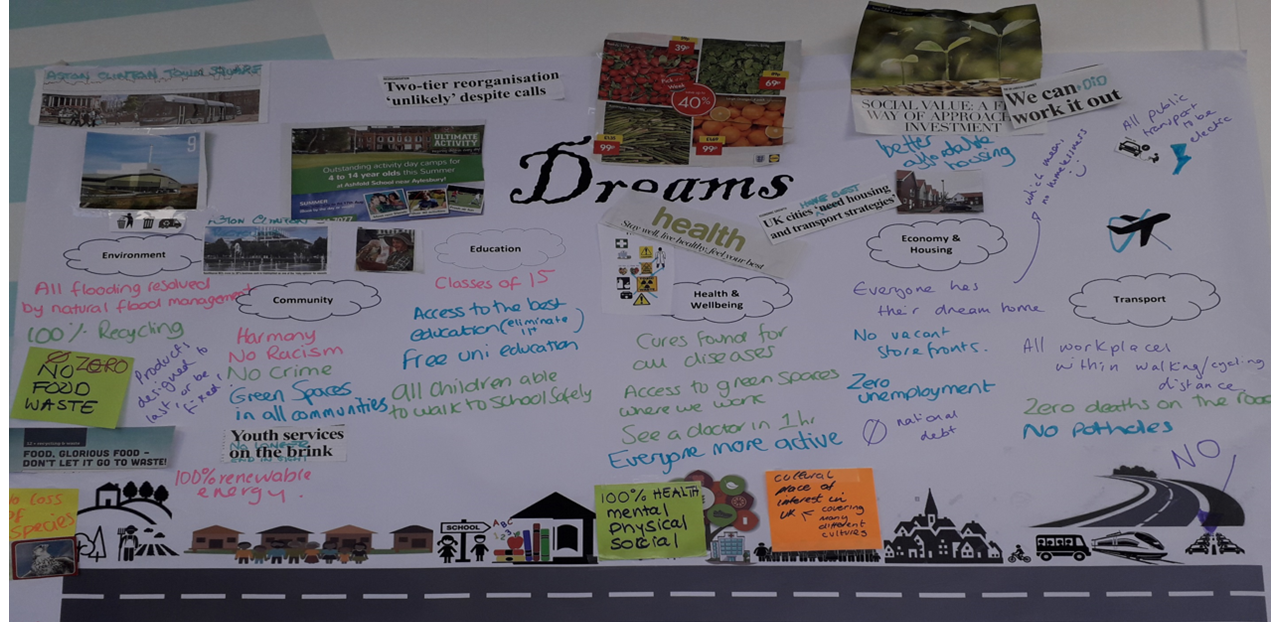 ASTON CLINTON TOWN SQUARE
Two-tier reorganisation
'unlikely' despite calls
9
ULTIMATE
ACTIVITY
Outstanding activity day camps for
4 to 14 year olds this Summer
at Ashfold School near Aylesbury!
SUMMER
39p
69p
Pick of the
Week
40%
99p
99p
SOCIAL VALUE: A
WAY OF APPROAC
INVESTMENT
We can DID
work it out
Dreams
better
affordable
housing
which means
no homelessness
All public
transport
to be
electric
HAVE BEST
UK cities 'need housing
and transport strategies'
health
Stay well, live healthy, feel your best
ASTON CLINTON
Environment
All flooding resolved
by natural flood management
100% Recycling
NO ZERO
FOOD
WASTE
Products
designed to
last, or be
fixed!
FOOD, GLORIOUS FOOD –
DON'T LET IT GO TO WASTE!
loss
OF
SPECIES
Community
Harmony
No Racism
No Crime
Green Spaces
in all communities
Youth services
NO LONGER
on the brink
100% renewable
energy.
Education
Classes of 15
Access to the best
education (eliminate
11+)
Free uni education
all children able
to walk to school safely
SCHOOL
ABC
123
Health &
Wellbeing
Cures found for
all diseases
Access to green spaces
where we work
See a doctor in 1hr
Everyone more active
100% HEALTH
mental
physical
social
cultural
place of
interest in
UK covering
many
different
cultures
Economy &
Housing
Everyone has
their dream home
No vacant
storefronts.
Zero
unemployment
Ø national
debt
Transport
All workplaces
within walking/cycling
distance
Zero deaths on the road
No potholes
NO